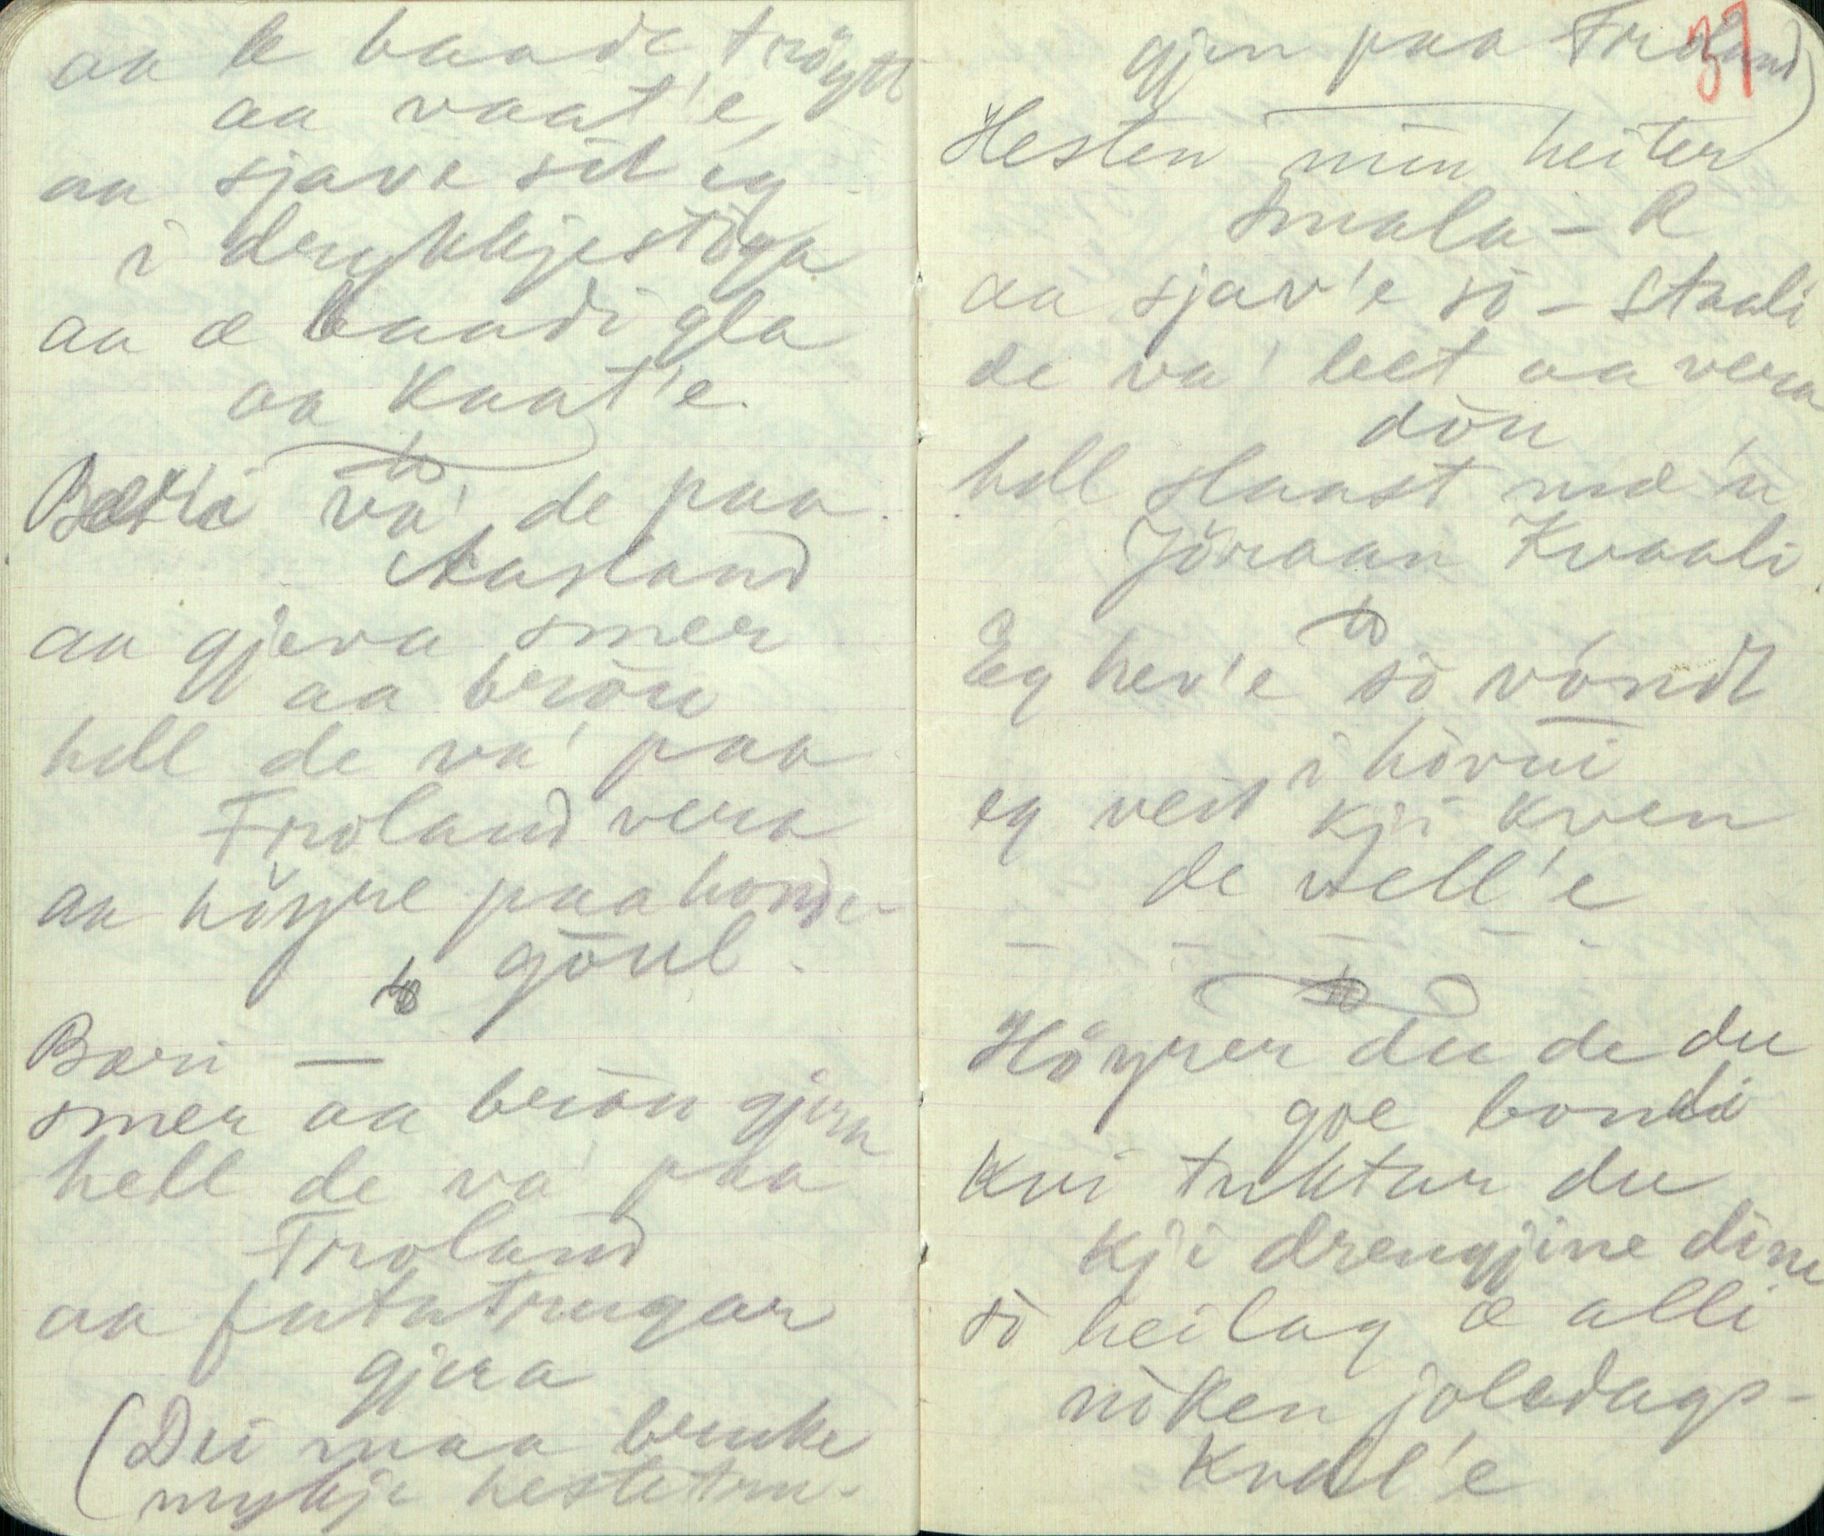 aa æ baade tröytt
aa vaat'e,
aa sjave sit eg
i drykkjestöga
aa æ baadi gla
aa kaat'e.
Bæri va' de paa
Aasland
aa gjeva smer
aa brön
hell de va' paa
Froland vera
aa höyre paa honde-
göul.
Bæri —
smer aa brön gjeva
hell de va' paa
Froland
aa futatrugar
gjera
(Dei maa bruke
mykje hestetru-
37
gjer paa Froland)
Hesten min heiter
Smala-R
aa sjav'e sò - Staali
de va' bet aa vera
dön
hell slaast mæ 'n
Jöraan Kvaali.
Eg hev'e sò vóndt
i hòvui
eg veit kji kven
de vell'e
— — — — -
Höyrer du de du
goe bondi
Kvi tuktar du
kji drengjine dine
sò heilag æ alli
nòken joledags-
kvæl'e